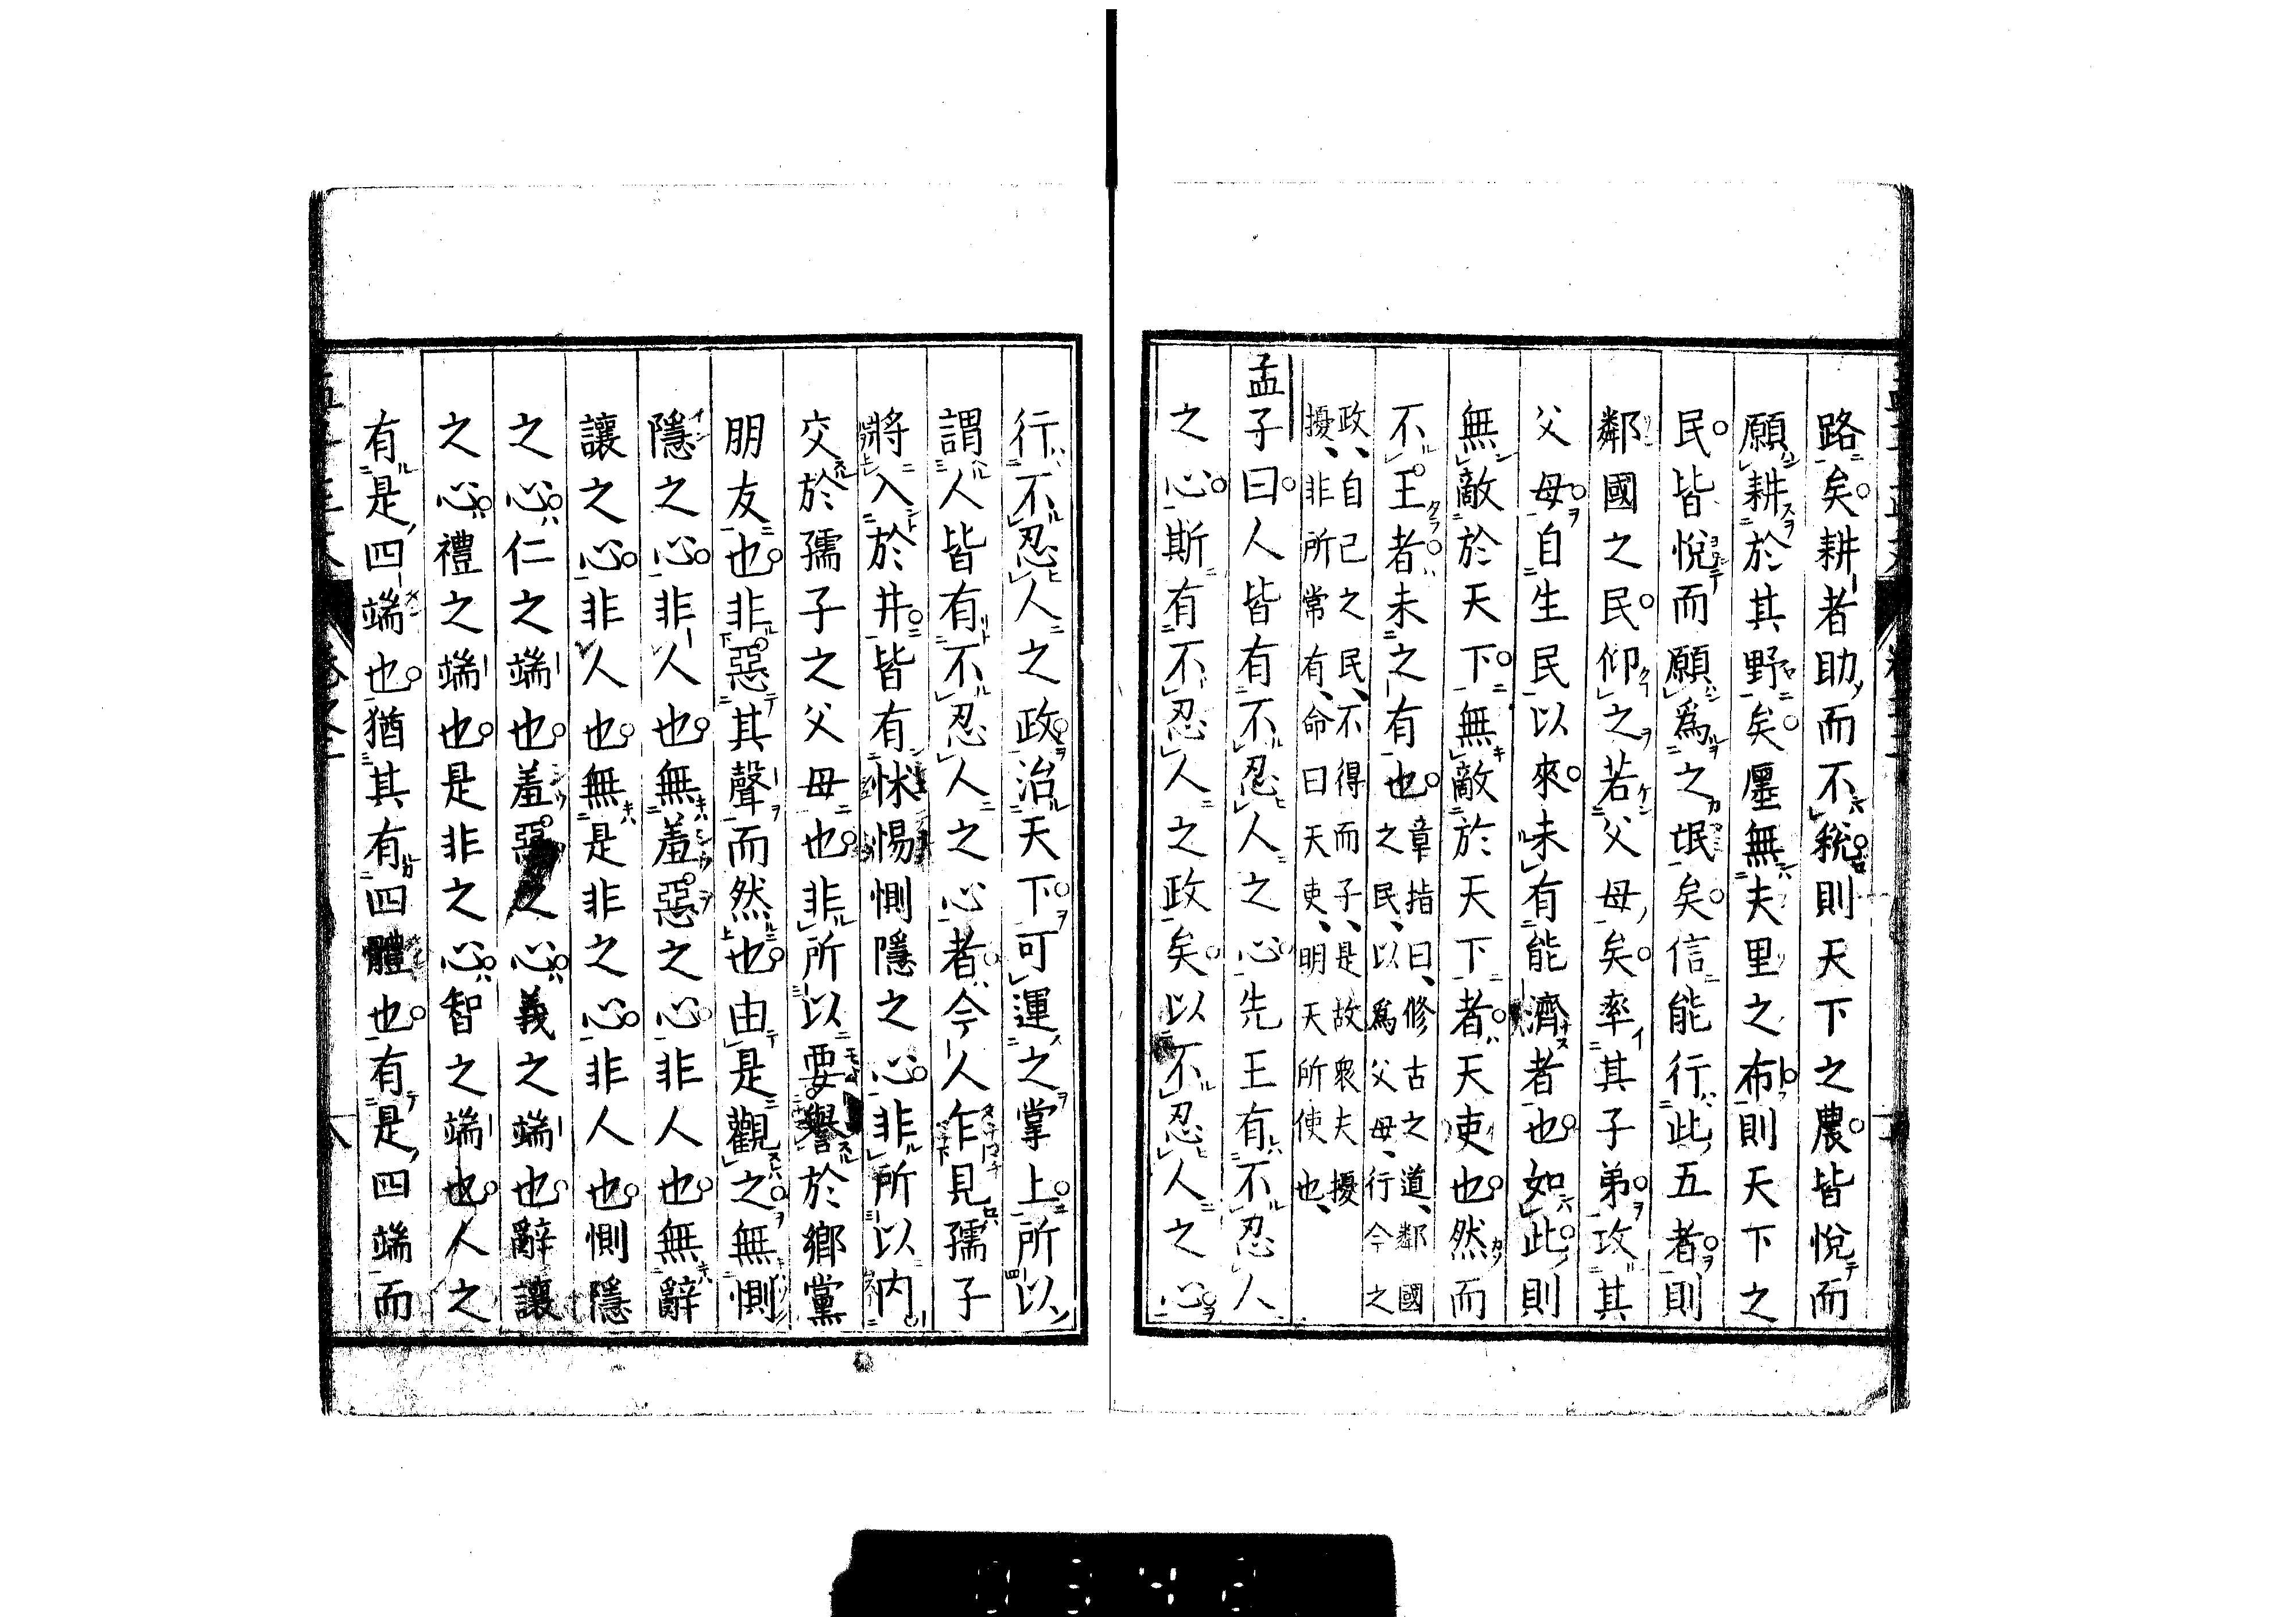 路矣耕者助而不税則天下之農皆悅而
願耕於其野矣廛無夫里之布則天下之
民皆悅而願爲之氓矣信能行此五者則
鄰國之民仰之若父母矣率其子弟攻其
父母自生民以來未有能濟者也如此則
無敵於天下無敵於天下者天吏也然而
不王者未之有也
章指曰修古之道鄰國
之民以爲父母行今之
政自已之民不得而子是故衆夫擾
擾非所常有命曰天吏明天所使也
孟子曰人皆有不忍人之心先王有不忍人
之心斯有不忍人之政矣以不忍人之心
行不忍人之政治天下可運之掌上所以
謂人皆有不忍人之心者今人乍見孺子
將入於井皆有怵惕惻隱之心非所以内
交於孺子之父母也非所以要譽於鄉黨
朋友也非惡其聲而然也由是觀之無惻
隱之心非人也無羞惡之心非人也無辭
讓之心非人也無是非之心非人也惻隱
之心仁之端也羞惡之心義之端也辭讓
之心禮之端也是非之心智之端也人之
有是四端也猶其有四體也有是四端而